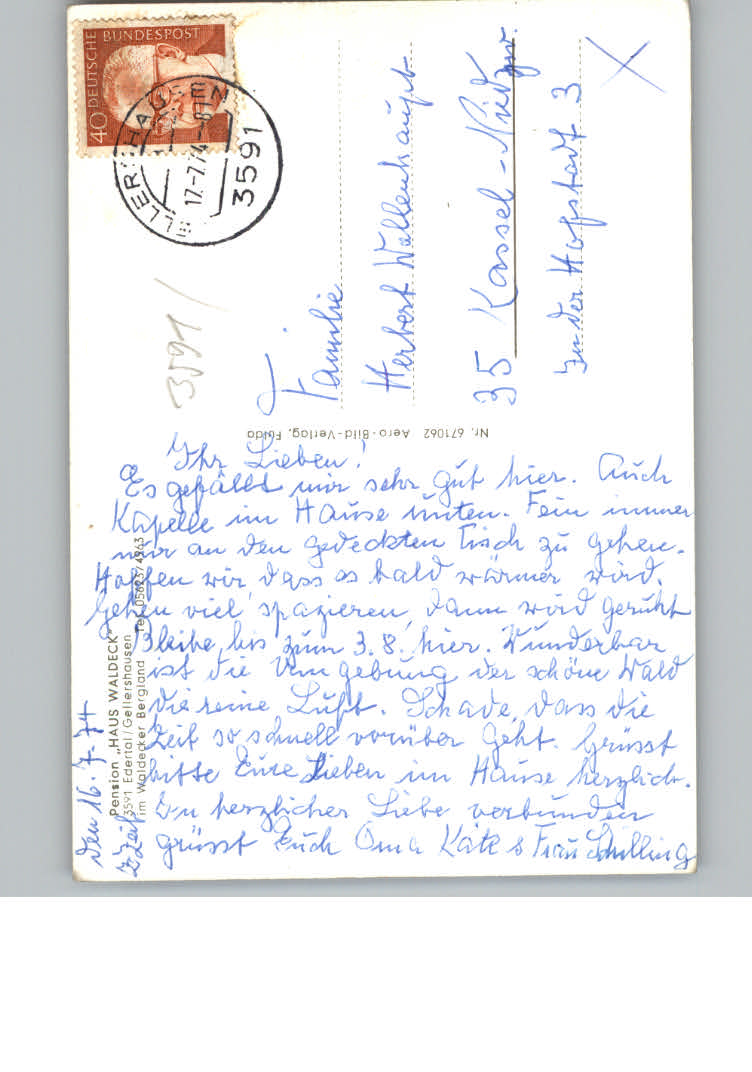 DEUTSCHE BUNDESPOST
40
GELLERSHAUSEN
17.-7.74-8
3591
3591
Familie
Herbert Wallenhaupt
35 Kassel-Ndzw.
In der Hofstadt 3
Nr. 671062 Aero-Bild-Verlag, Fulda
Pension „HAUS WALDECK"
3591 Edertal/Gellershausen
im Waldecker Bergland Tel. 05623/4363
den 16.7.74
z Zeit
Ihr Lieben!
Es gefällt mir sehr gut hier. Auch
Kapelle im Hause unten. Fein immer
nur an den gedeckten Tisch zu gehen.
Hoffen wir, dass es bald wärmer wird.
Gehen viel spazieren, dann wird geruht
Bleibe bis zum 3.8. hier. Wunderbar
ist die Umgebung der schöne Wald
die reine Luft. Schade, dass die
Zeit so schnell vorüber geht. Grüsst
bitte Eure Lieben im Hause herzlich.
In herzlicher Liebe verbunden
grüsst Euch Oma Käte & Frau Schilling